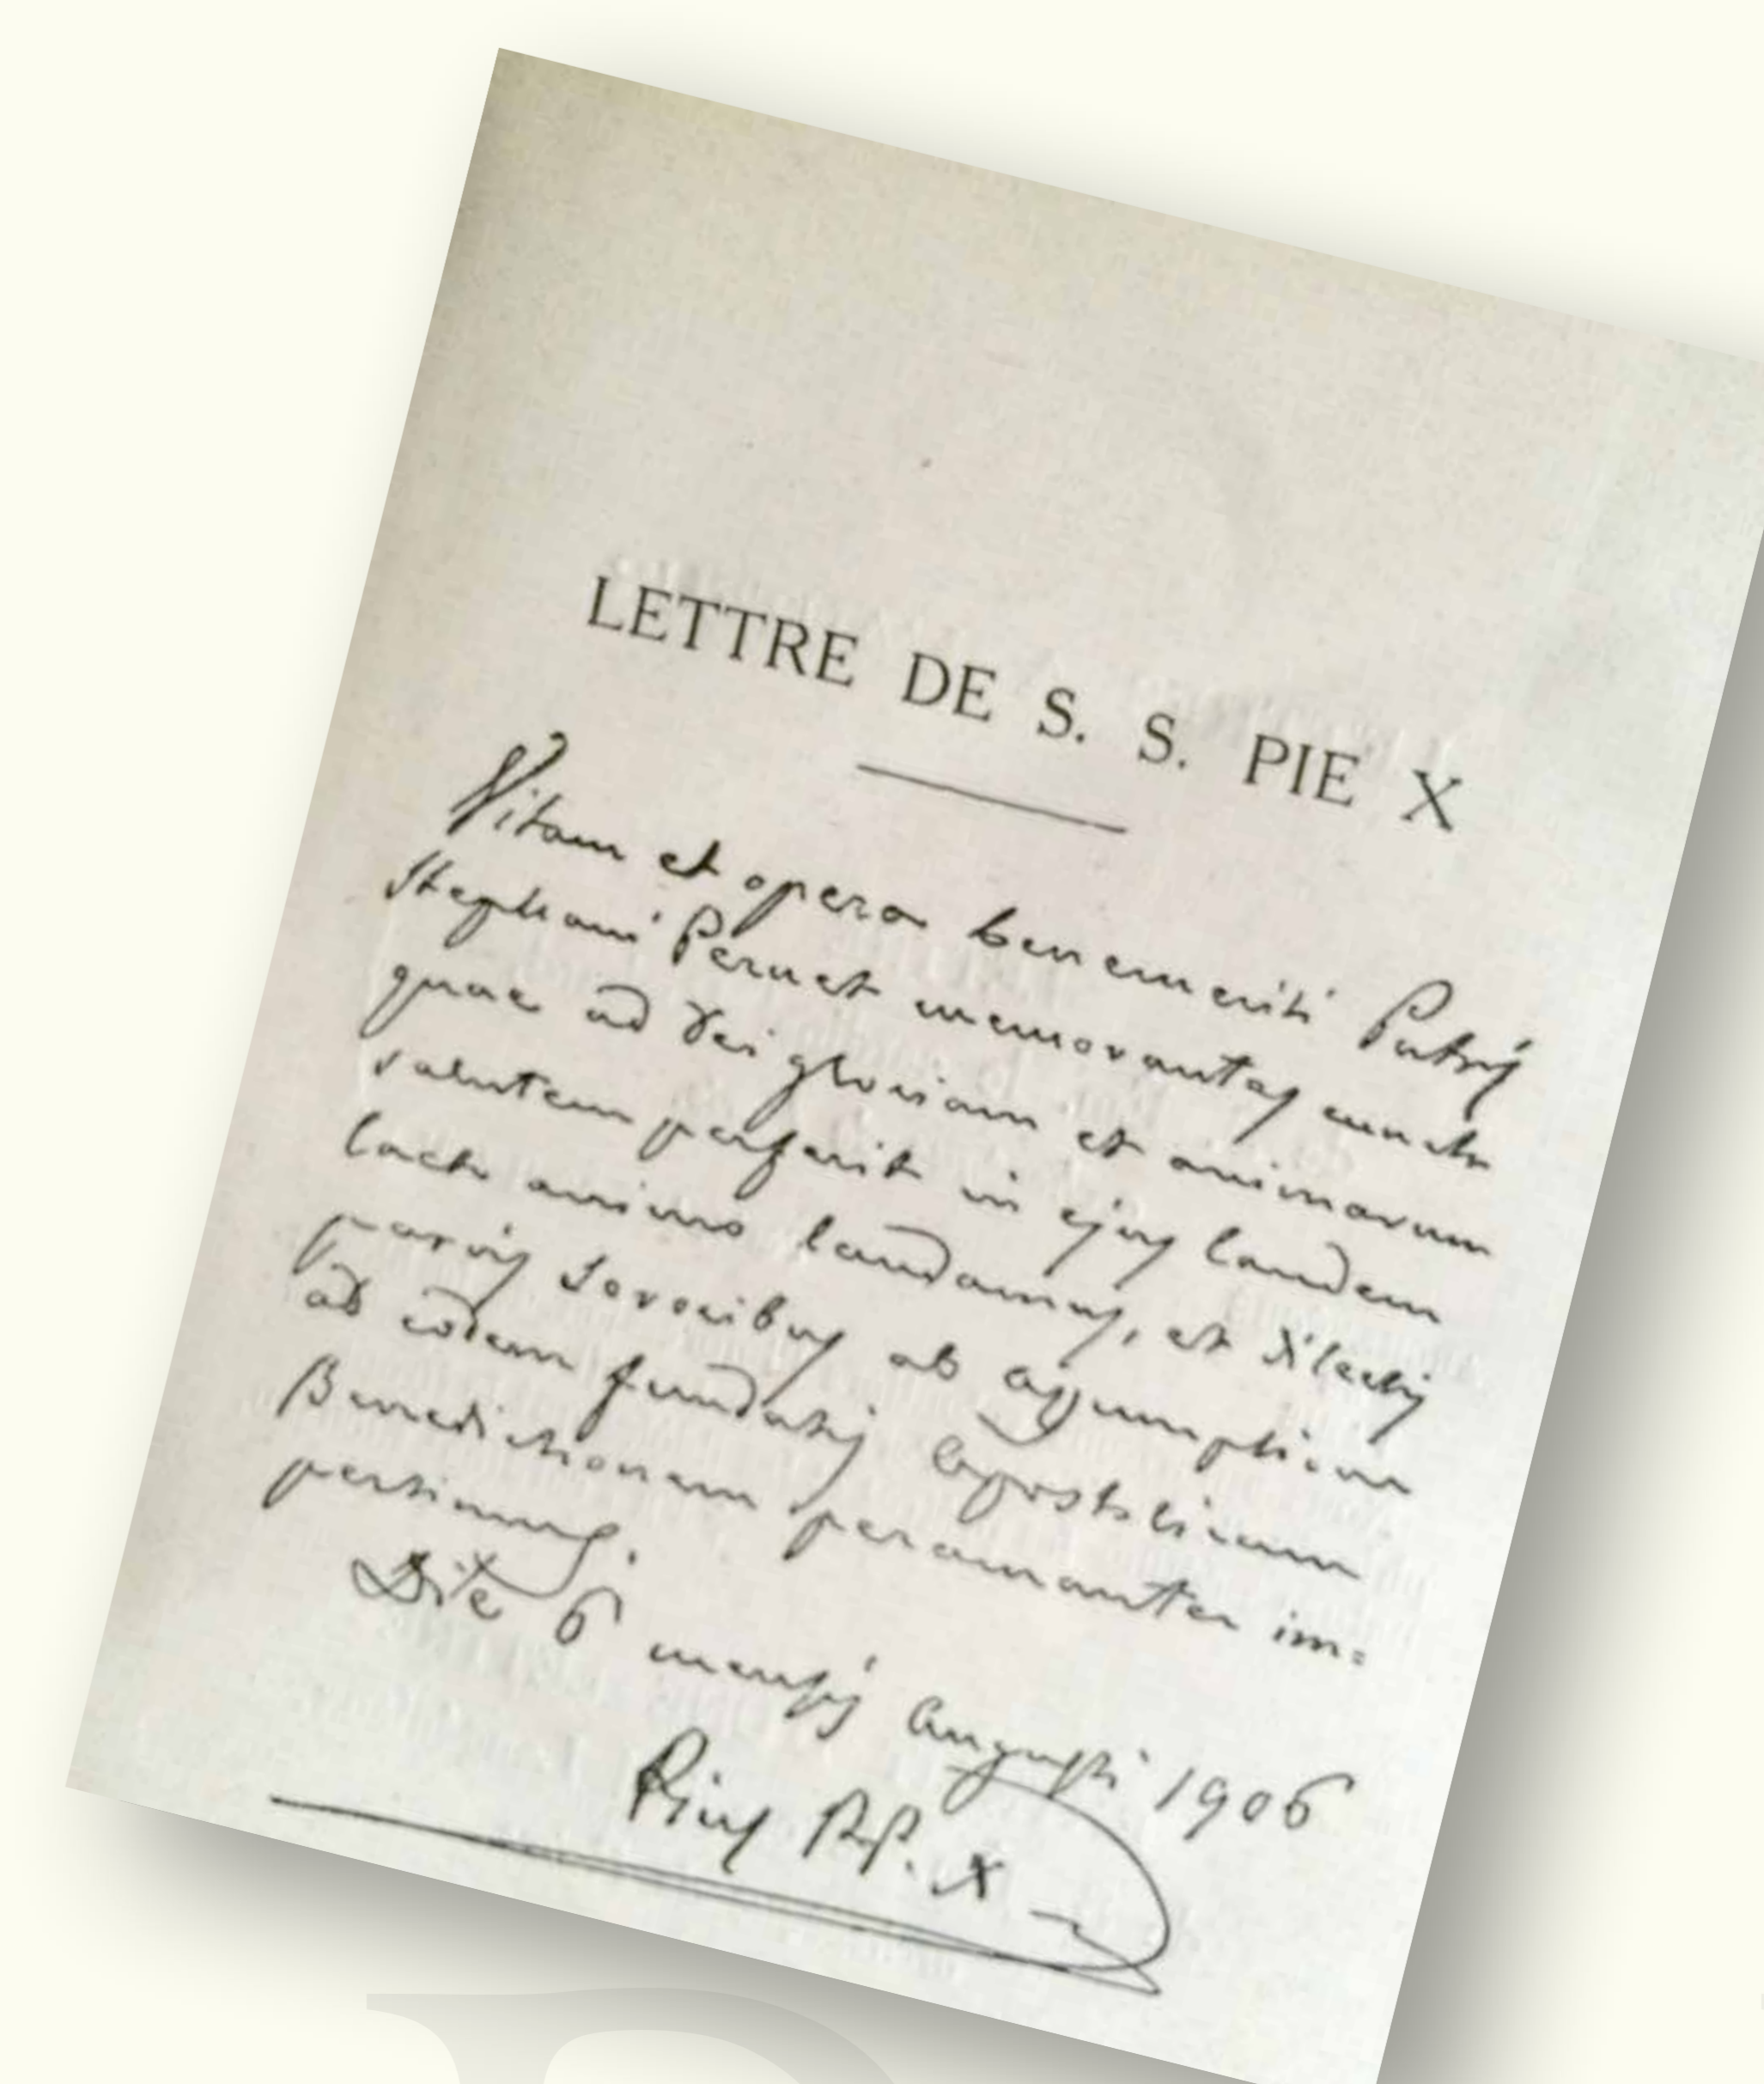 LETTRE DE S. S. PIE X
Vitam et opera benemeriti Patris
Stephani Pernet memorantes cuncta
quae ad Dei gloriam et animarum
salutem perfecit in ejus laudem
laeto animo laudamus, et dilectis
parvis Sororibus ab assumptione
ab eodem fundatis Apostolicam
Benedictionem peramanter im=
pertimus.
Die 6 mensis Augusti 1906
Pius PP. X